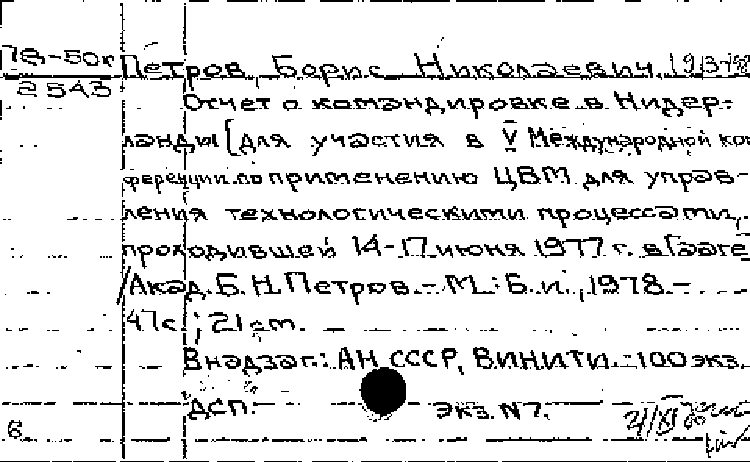 78-50к
2543
Петров, Борис Николаевич, 1913-
Отчет о командировке в Нидер-
ланды [для участия в V Международной кон
ференции по применению ЦВМ для управ-
ления технологическими процессами,
проходившей 14-17 июня 1977 г. в Гааге
/ Акад. Б.Н. Петров. - М.: Б.и., 1978. -
47с.; 21 см.
В надзаг.: АН СССР, ВИНИТИ. - 100 экз.
ДСП.
экз. N 7.
б